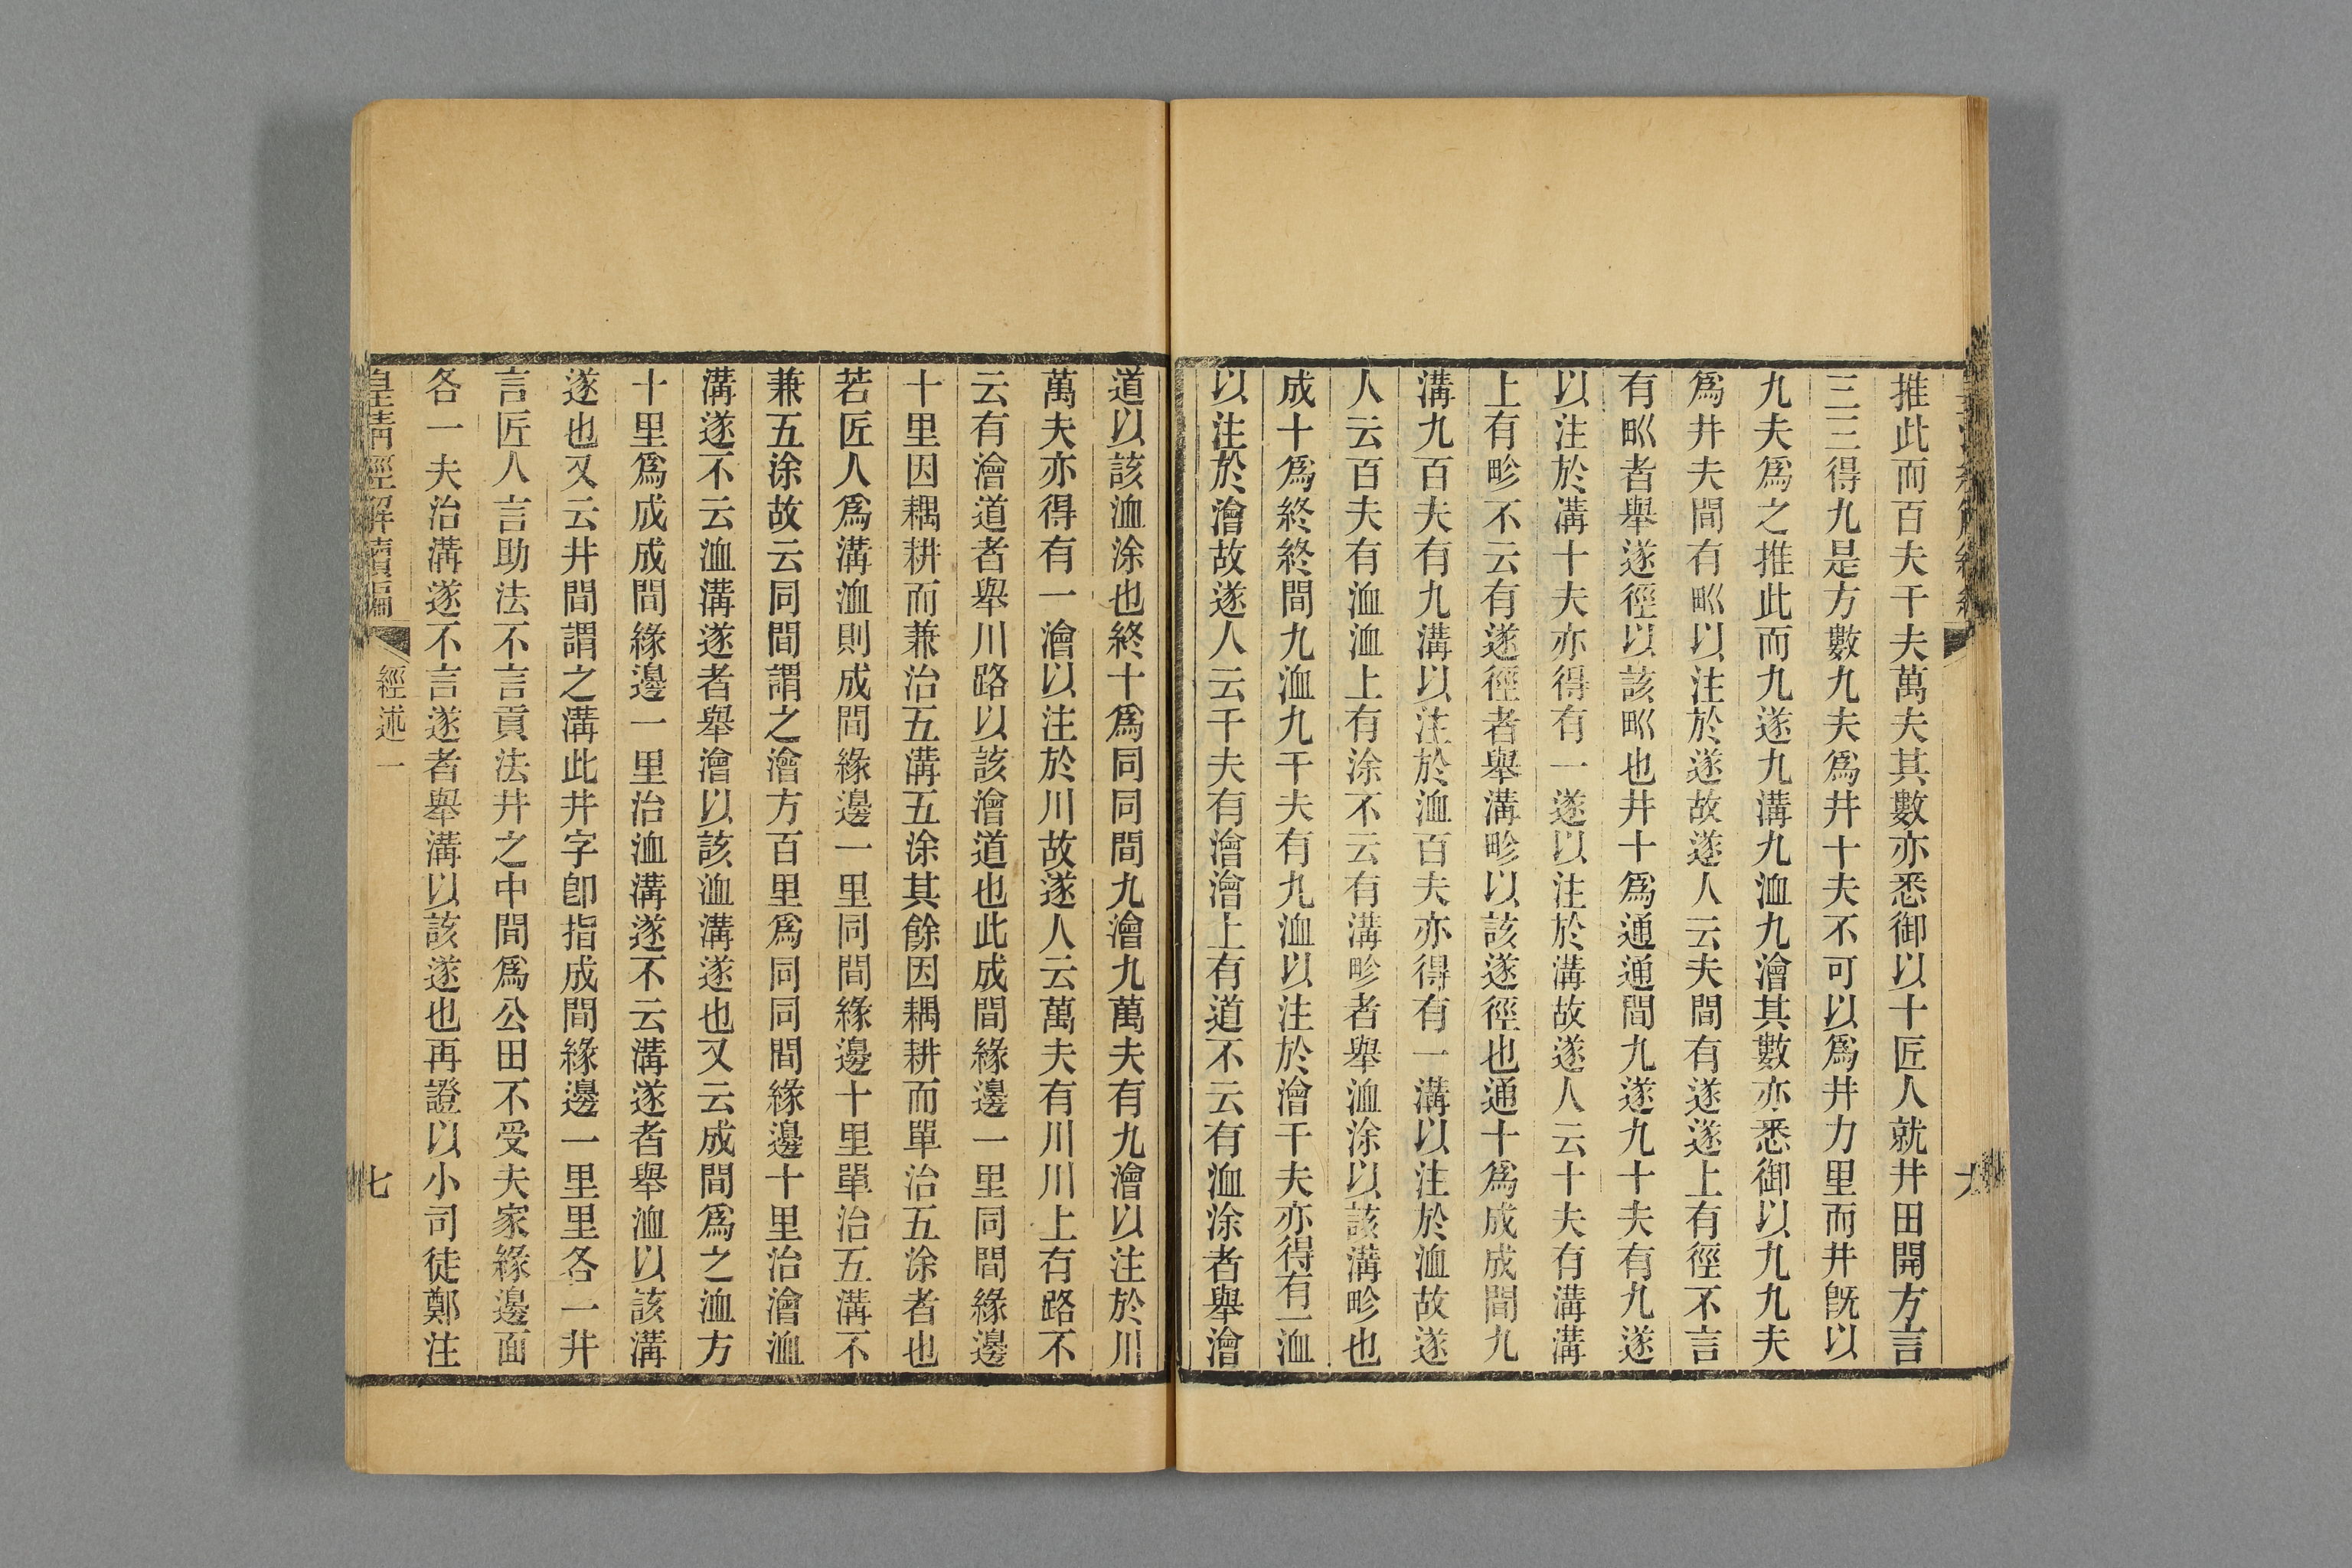 推此而百夫千夫萬夫其數亦悉御以十匠人就井田開方言
三三得九是方數九夫爲井十夫不可以爲井力里而井旣以
九夫爲之推此而九遂九溝九洫九澮其數亦悉御以九九夫
爲井夫間有甽以注於遂故遂人云夫間有遂遂上有徑不言
有甽者舉遂徑以該甽也井十爲通通間九遂九十夫有九遂
以注於溝十夫亦得有一遂以注於溝故遂人云十夫有溝溝
上有畛不云有遂徑者舉溝畛以該遂徑也通十爲成成間九
溝九百夫有九溝以注於洫百夫亦得有一溝以注於洫故遂
人云百夫有洫洫上有涂不云有溝畛者舉洫涂以該溝畛也
成十爲終終間九洫九千夫有九洫以注於澮千夫亦得有一洫
以注於澮故遂人云千夫有澮澮上有道不云有洫涂者舉澮
道以該洫涂也終十爲同同間九澮九萬夫有九澮以注於川
萬夫亦得有一澮以注於川故遂人云萬夫有川川上有路不
云有澮道者舉川路以該澮道也此成間緣邊一里同間緣邊
十里因耦耕而兼治五溝五涂其餘因耦耕而單治五涂者也
若匠人爲溝洫則成間緣邊一里同間緣邊十里單治五溝不
兼五涂故云同間謂之澮方百里爲同同間緣邊十里治澮洫
溝遂不云洫溝遂者舉澮以該洫溝遂也又云成間爲之洫方
十里爲成成間緣邊一里治洫溝遂不云溝遂者舉洫以該溝
遂也又云井間謂之溝此井字卽指成間緣邊一里里各一井
言匠人言助法不言貢法井之中間爲公田不受夫家緣邊面
各一夫治溝遂不言遂者舉溝以該遂也再證以小司徒鄭注
皇淸經解續編
經述一
七